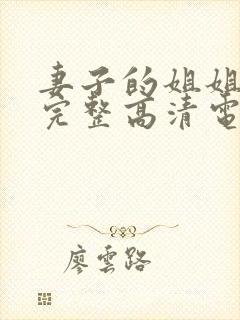 妻子的姐姐
完整高清電
廖雲路